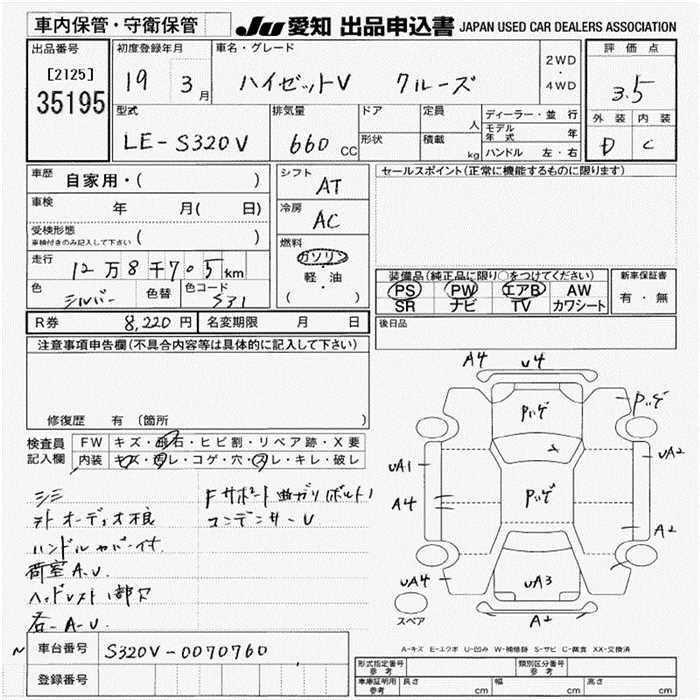 車内保管・守衛保管
JU 愛知 出品申込書 JAPAN USED CAR DEALERS ASSOCIATION
出品番号
[2125]
35195
初度登録年月
19 3月
車名・グレード
ハイゼットV クルーズ
2WD
・
4WD
評価点
3.5
外装 内装
D C
型式
LE-S320V
排気量
660 CC
ドア
形状
定員
人
積載
kg
ディーラー・並行
モデル年式 年
ハンドル 左・右
車歴 自家用・( )
車検 年 月( 日)
受検形態
車検付きのみ記入して下さい ( )
走行
12万8千705km
色 シルバー 色替 色コード S31
シフト
AT
冷房
AC
燃料
ガソリン
軽・油
( ・ )
セールスポイント(正常に機能するものに限ります)
装備品(純正品に限り○をつけてください)
PS PW エアB AW
SR ナビ TV カワシート
新車保証書
有・無
R券 8,220円 名変期限 月 日
後日品
注意事項申告欄(不具合内容等は具体的に記入して下さい)
修復歴 有 (箇所 )
検査員記入欄
FW キズ・飛石・ヒビ割・リペア跡・X要
内装 キズ・汚レ・コゲ・穴・スレ・キレ・破レ
シミ
オーディオ不良
ハンドルカバー付
荷室A.U.
Fサポート曲ガリ(ボルト)
コンデンサーU
A.U
A4
U4
Pハゲ
Pハゲ
UA1
UA2
A4
Pハゲ
A2
UA4
UA3
A2
スペア
A-キズ E-エクボ U-凹み W-補修跡 S-サビ C-腐食 XX-交換済
車台番号 S320V-0070760
登録番号
形式指定番号 参考
類別区分番号 参考
車庫証明用 参考 長さ cm 幅 cm 高さ cm